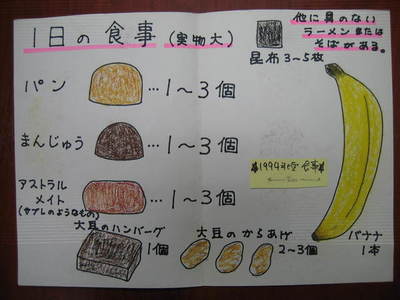 1日の食事(実物大)
他に具のない
ラーメンまたは
そばがある。
昆布3~5枚
パン …1~3個
まんじゅう …1~3個
アストラル
メイト …1~3個
(サブレのようなもの)
※1994年の食事※
大豆のハンバーグ
1個
大豆のからあげ
2~3個
バナナ
1本